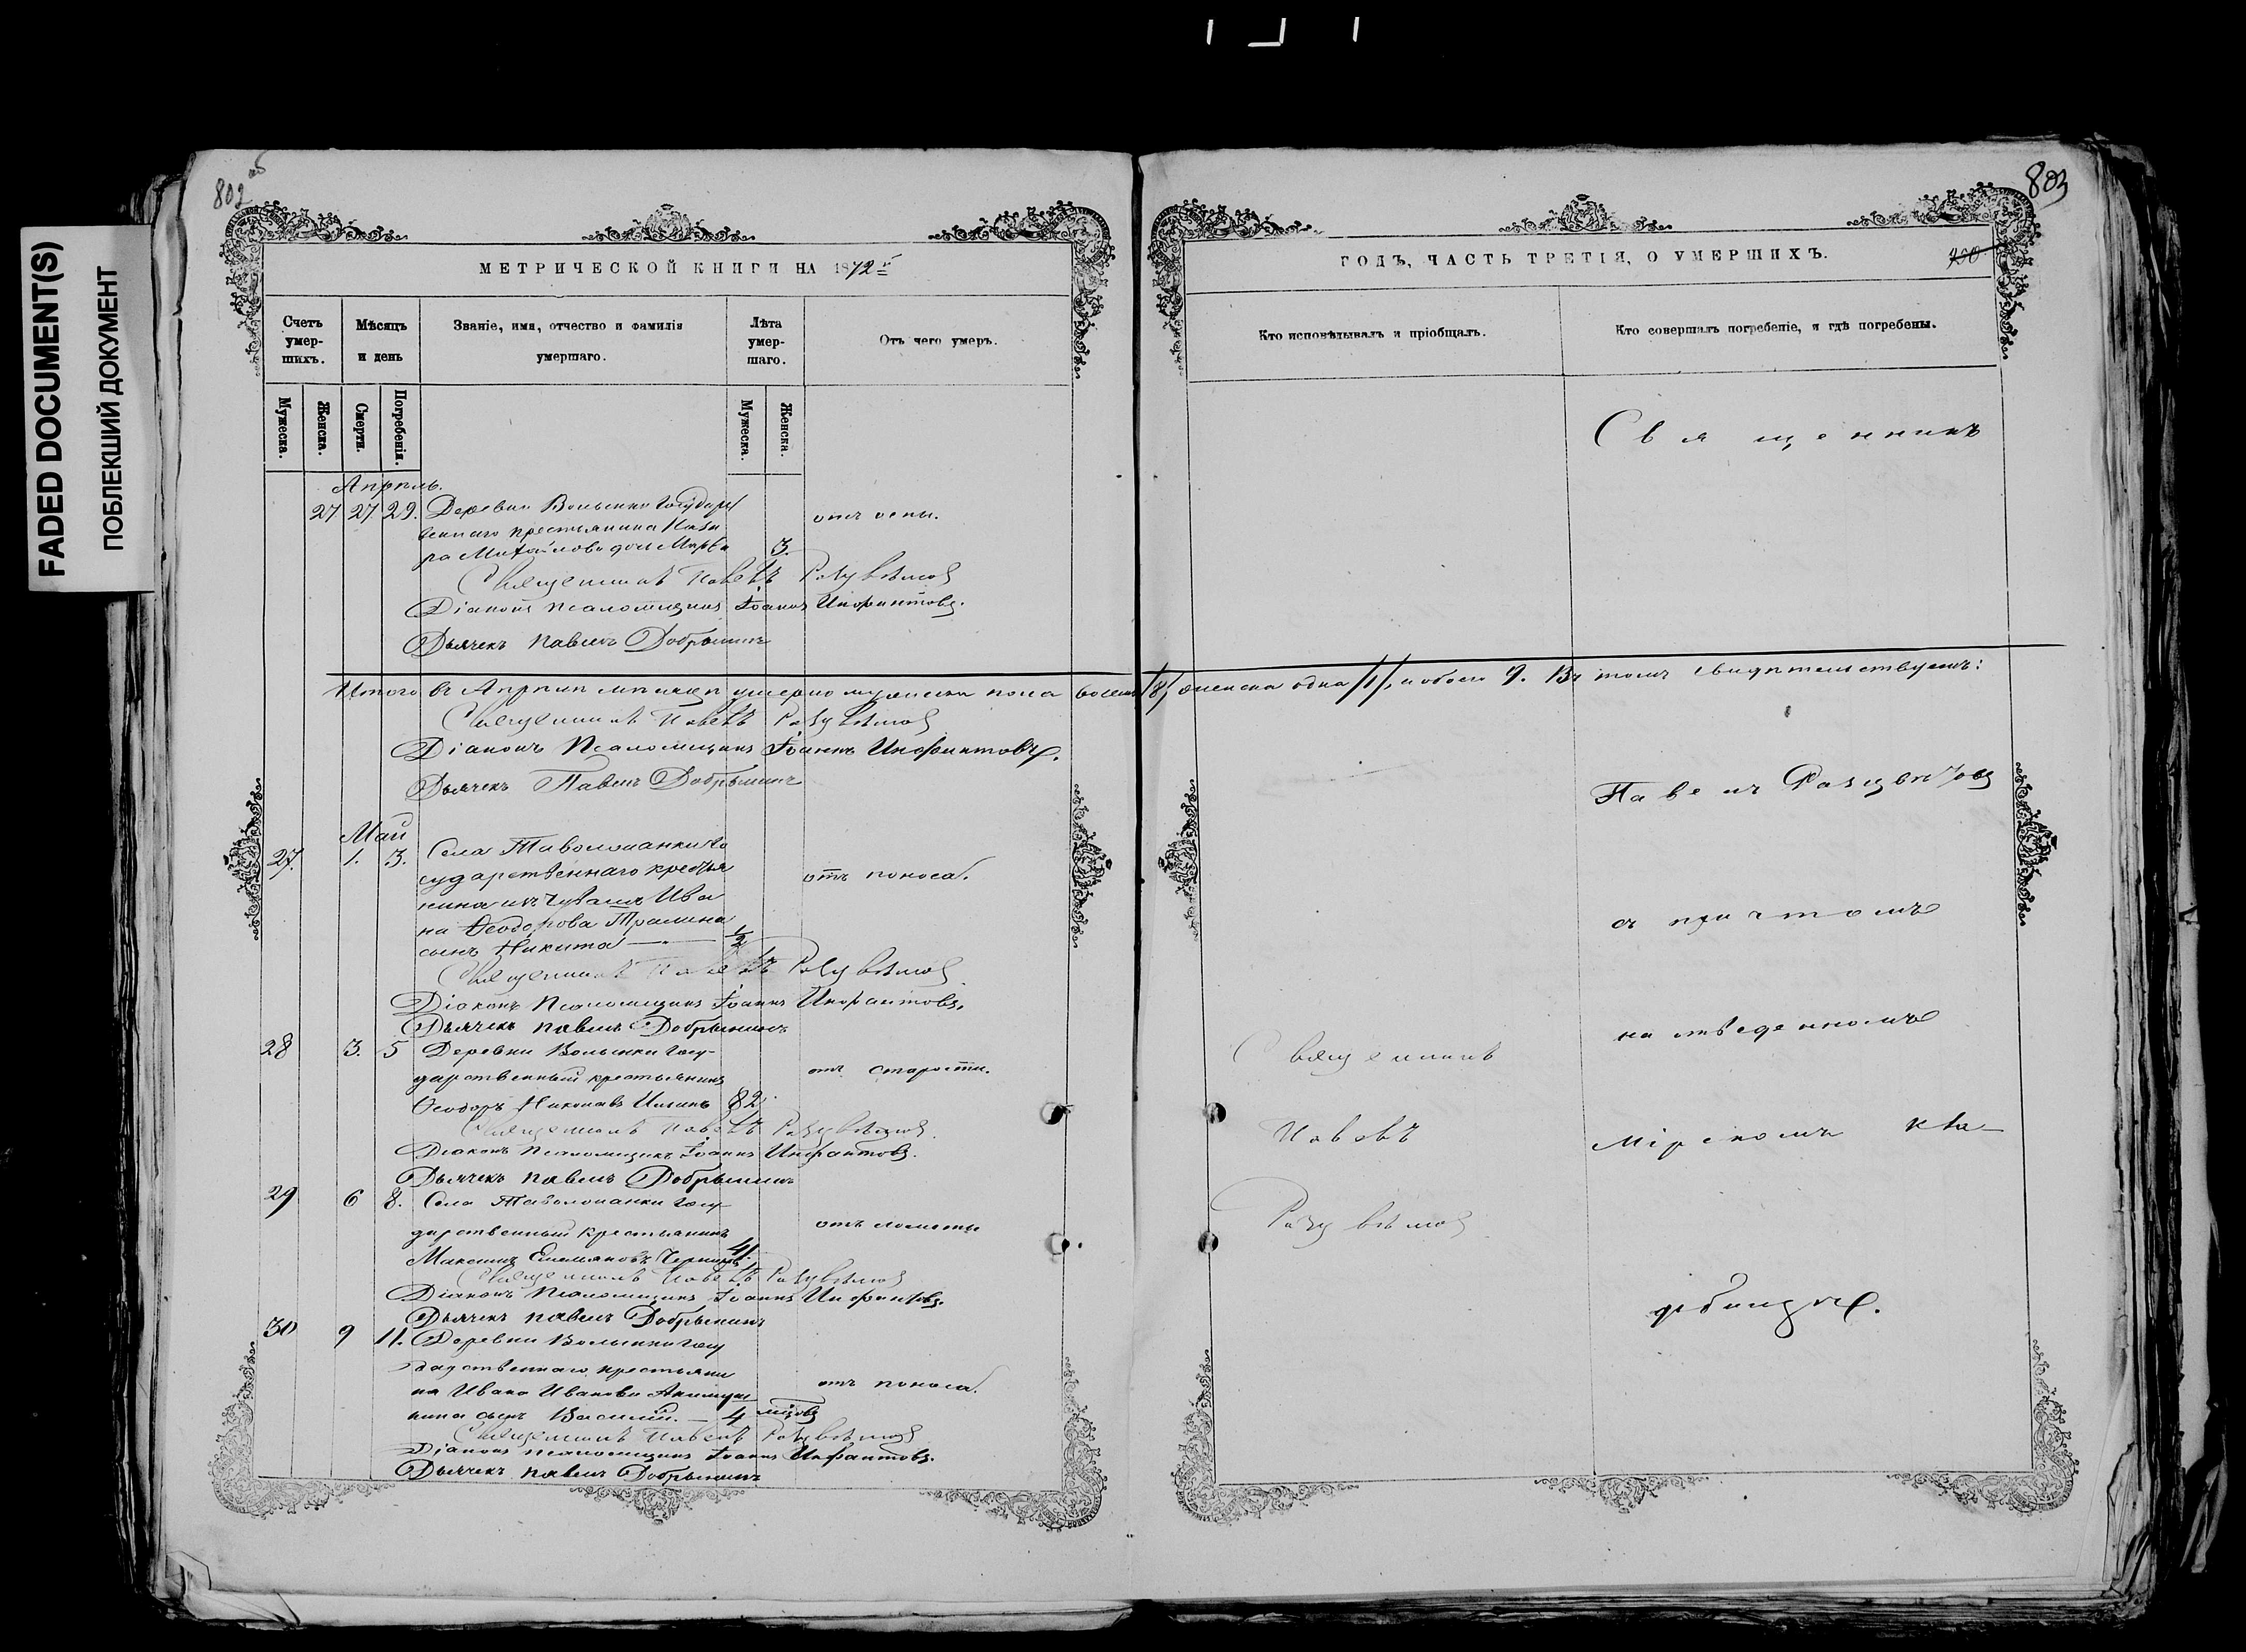 FADED DOCUMENT(S)
ПОБЛЕКШИЙ ДОКУМЕНТ
802 об
МЕТРИЧЕСКОЙ КНИГИ НА 1872 й
Счетъ умер-шихъ.
Мѣсяцъ и день
Званіе, имя, отчество и фамилія умершаго.
Лѣта умер-шаго.
Отъ чего умеръ.
Мужеска.
Женска.
Смерти.
Погребенія.
Мужеска.
Женска.
Апрѣль.
27 27 29. Деревни Волынки Государст
веннаго крестьянина
ра Михайлова дочь Марѳа 3.
отъ оспы.
Священникъ Павелъ Разцвѣтовъ
Діаконъ Псаломщикъ Іоаннъ Инфантовъ.
Дьячекъ Павелъ Добрынинъ
Итого въ Апрѣлѣ мѣсяцѣ умерло мужеска пола восемь /8/
Священникъ Павелъ Разцвѣтовъ
Діаконъ Псаломщикъ Іоаннъ Инфантовъ.
Дьячекъ Павелъ Добрынинъ
Май
27. 1. 3. Села Таволожанки го
сударственнаго крестья
нина изъ Чувашъ Ива
на Ѳеодорова
сынъ Никита — 1/2
отъ поноса.
Священникъ Павелъ Разцвѣтовъ
Діаконъ Псаломщикъ Іоаннъ Инфантовъ.
Дьячекъ Павелъ Добрынинъ
28 3. 5 Деревни Волынки госу-
дарственный крестьянинъ
Ѳеодоръ 82.
отъ старости.
Священникъ Павелъ Разцвѣтовъ
Діаконъ Псаломщикъ Іоаннъ Инфантовъ.
Дьячекъ Павелъ Добрынинъ
29 6 8. Села Таволожанки госу-
дарственный крестьянинъ
Максимъ Емельяновъ 41.
отъ ломоты
Священникъ Павелъ Разцвѣтовъ
Діаконъ Псаломщикъ Іоаннъ Инфантовъ.
Дьячекъ Павелъ Добрынинъ
30 9 11. Деревни Волынки госу
дарственнаго крестьяни
на Ивана Иванова
сынъ Василій. — 4 мѣсяц
отъ поноса.
Священникъ Павелъ Разцвѣтовъ
Діаконъ Псаломщикъ Іоаннъ Инфантовъ.
Дьячекъ Павелъ Добрынинъ
803
ГОДЪ, ЧАСТЬ ТРЕТІЯ, О УМЕРШИХЪ.
Кто исповѣдывалъ и пріобщалъ.
Кто совершалъ погребеніе, и гдѣ погребены.
женска одна /1/, и обоего 9. Въ томъ свидѣтельствуемъ:
Священникъ
Павелъ
Разцвѣтовъ
Священникъ
Павелъ Разцвѣтовъ
съ причтомъ
на отведенномъ
мірскомъ кла-
дбищѣ.